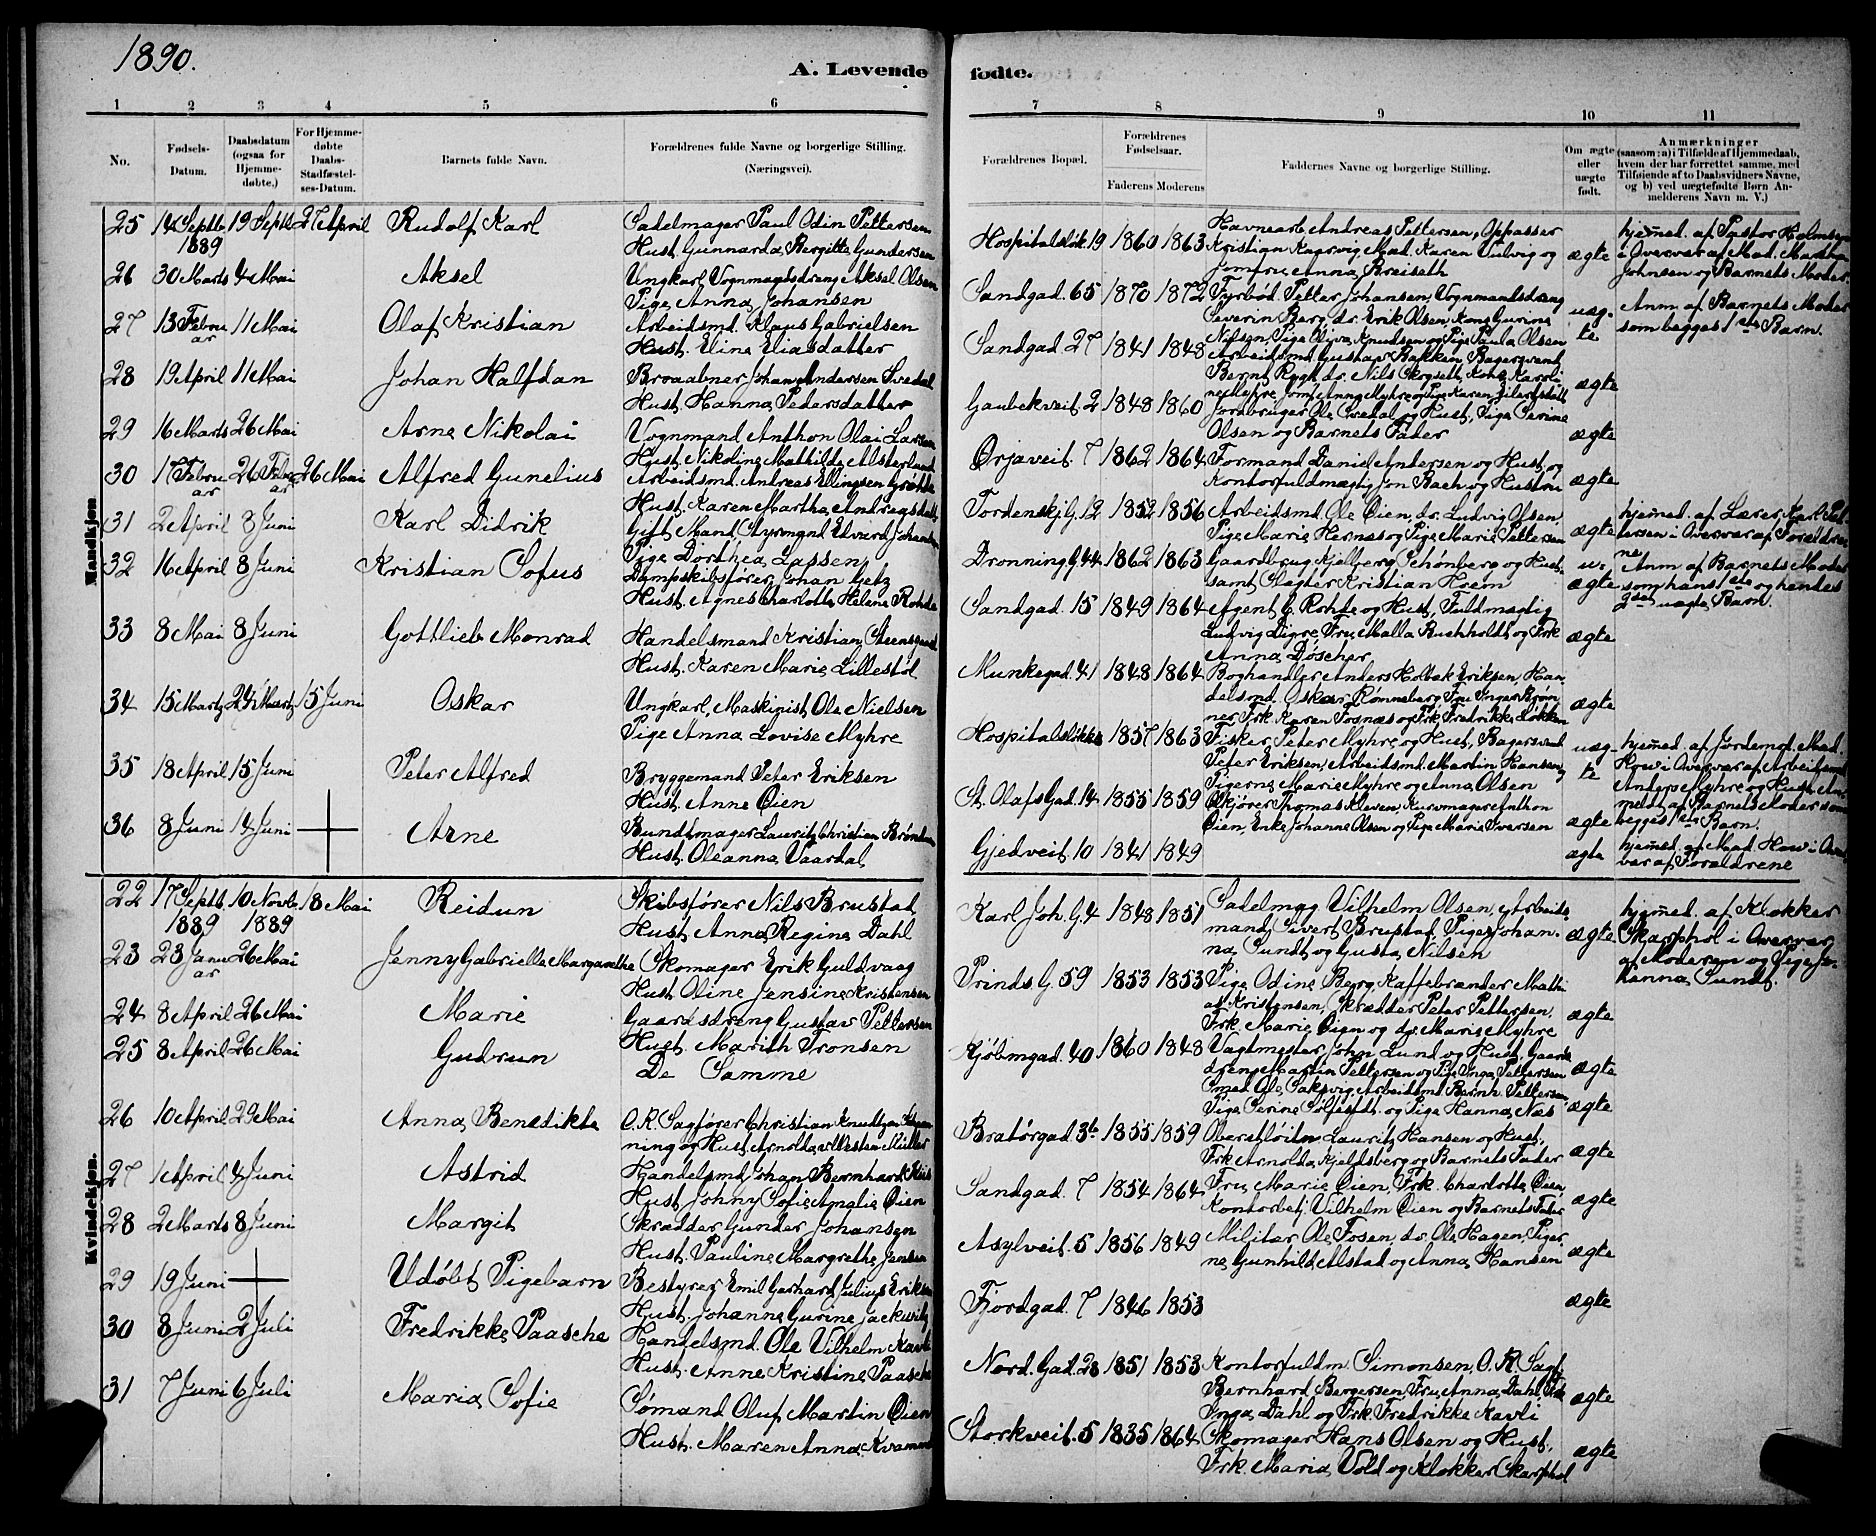 1890.
A. Levende
1 2 3 4 5 6
No.
Fødsels-
Datum.
Daabsdatum
(ogsaa for
Hjemme-
døbte.)
For Hjemme-
døbte
Daabs-
Stadfæstel-
ses-Datum.
Barnets fulde Navn.
Forældrenes fulde Navne og borgerlige Stilling.
(Næringsvei).
Mandkjøn
25 14 Septb. 19 Septb. 27 April Rudolf Karl Sadelmager Paul Odin Pettersen
1889 Hust. Gunnarda Bergitte Gundersen
26 30 Marts 4 Mai Aksel Ungkarl Vognmandsdreng Aksel Olsen
Pige Anna Johansen
27 13 Febru 11 Mai Olaf Kristian Arbeidsmd. Klaus Gabrielsen
ar Hust. Eline Eliasdatter
28 19 April 11 Mai Johan Halfdan Broaabner Johan Andersen Svedal
Hust. Hanna Pedersdatter
29 16 Marts 26 Mai Arne Nikolai Vognmand Anthon Olai Larsen
Hust. Nikoline Mathilde Alsterlund
30 17 Febru 26 Febru 26 Mai Alfred Gunelius Arbeidsmd. Andreas Ellingsen
ar ar Hust. Karen Martha
31 2 April 8 Juni Karl Didrik Gift Mand Styrmand Edvard Johansen
Pige Dorthea Lassen
32 16 April 8 Juni Kristian Sofus Dampskibsfører Johan Getz
Hust. Agnes Charlotte Helene Rohde
33 8 Mai 8 Juni Gottlieb Monrad Handelsmand Kristian Steensgaard
Hust. Karen Marie Lillestøl
34 15 Marts 24 Marts 15 Juni Oskar Ungkarl, Maskinist Ole Nielsen
Pige Anna Lovise Myhre
35 18 April 15 Juni Peter Alfred Bryggemand Peter Eriksen
Hust. Anne Øien
36 8 Juni 14 Juni Arne Bundtmager Lauritz Christian
Hust. Oleanna Vaardal
Kvindekjøn.
22 17 Septb. 10 Novb. 18 Mai Reidun Skibsfører Nils Brustad
1889 1889 Hust. Anna Regine Dahl
23 23 Janu 26 Mai Jenny Gabrielle Margarethe Skomager Erik Guldvaag
ar Hust. Oline Jensine Kristensen
24 8 April 26 Mai Marie Gaardsdreng Gustav Pettersen
Hust. Marith Tronsen
25 8 April 26 Mai Gudrun De Samme
26 10 April 29 Mai Anna Benedikte O.R. Sagfører Christian Knudtzon
ning og Hust. Arnolda Müller
27 1 April 4 Juni Astrid Handelsmd. Johan Bernhard
Hust. Johny Sofie Amalie Øien
28 2 Marts 8 Juni Margit Skrædder Gunder Johansen
Hust. Pauline Margrethe Jensen
29 19 Juni Udøbt Pigebarn Bestyrer Emil Gerhard Julius Eriksen
Hust. Johanne Gurine
30 8 Juni 2 Juli Fredrikke Paasche Handelsmd. Ole Vilhelm Kavli
Hust. Anne Kristine Paasche
31 7 Juni 6 Juli Maria Sofie Sømand Oluf Martin Øien
Hust. Maren Anna
fødte.
7 8 9 10 11
Forældrenes Bopæl.
Forældrenes
Fødselsaar.
Faderens Moderens
Faddernes Navne og borgerlige Stilling.
Om ægte
eller
uægte
født.
Anmærkninger
(saasom: a) i Tilfælde af Hjemmedaab,
hvem der har forrettet samme, med
Tilføiende af to Daabsvidners Navne,
og b) ved uægtefødte Børn An-
melderens Navn m. V.)
Hospitalsløk. 19 1860 1863 Havnearb. Andreas Pettersen, Oppasser
Kristian Mad. Karen Vulvig og
Jomfru Anna Breiseth
ægte
hjemmed. af Pastor Holmsen
i Overvær af Mad. Marthea
Johnsen og Barnets Moder
Sandgad. 65 1870 1872 Fyrbød. Petter Johansen, Vognmandsdreng
Severin Berg, do. Erik Olsen, Kone Gurine
Nilsen, Pige Olyva Knudsen og Pige Paula Olsen
uæg-
te
Anm. af Barnets Moder
som begges 1ste Barn.
Sandgad. 27 1841 1848 Arbeidsmd. Gustav Bakken, Bagersvend
Bernt Rygh, do. Nils
ægte
Gaubekveit 2 1848 1860 Jordbruger Ole Svedal og Hust., Pige Serine
Olsen og Barnets Fader
ægte
Ørjaveit. 7 1862 1864 Formand Daniel Andersen og Hust. og
Kontorfuldmægtig Jon Bach og Hustru
ægte
Tordenskj. G. 12 1852 1856 Arbeidsmd. Ole Øien, do. Ludvig Olsen,
Pige Marie Hernæs og Pige Marie Pettersen
ægte
hjemmed. af Lærer Karl Pet-
tersen i Overvær af Forældre
ne
Dronning. G. 44 1862 1863 Gaardbrug. Kjelberg, Schønberg og Hust.
samt Slagter Kristian Hrem
u-
ægte
Anm. af Barnets Moder
som hans 1ste og hendes
2det uægte Barn.
Sandgad. 15 1849 1864 Agent C. Rohde og Hust., Fuldmægtig
Ludvig Digre, Fru Malla Buchholdt og Frk.
Anna Døscher
ægte
Munkegad. 41 1848 1864 Boghandler Anders Holbæk Eriksen, Han
delsmd. Oskar Rømmeberg, Fru Inger Brøm
ner, Frk. Karen Fosnæs og Frk. Fredrikke Løkken
ægte
Hospitalsløkke 1857 1863 Fisker Peter Myhre og Hust., Bagersvend
Peter Eriksen, Arbeidsmd. Martin Hansen,
Pigerne Marie Myhre og Anna Olsen
uæg-
te
hjemmed. af Jordemor Mad.
How i Overvær af Arbeidsmd.
Anders Myhre og Hust. An-
meldt af Barnets Moder som
begges 1ste Barn.
St. Olafs Gad. 14 1855 1859 Thomas Kleven, Kurvmager Anthon
Øien, Enke Johanne Olsen og Pige Marie Iversen
ægte
Gjedveit. 10 1841 1849 ægte
hjemmed. af Mad. How i Over-
vær af Forældrene
Karl Joh. G. 4 1848 1851 Sadelmag. Vilhelm Olsen, Arbeids
mand Sivert Brustad, Piger Johan-
na Sundt og Gusta Nilsen
ægte
hjemmed. af Klokker
Skarphol i Overvær
af Moderen og Pige Jo-
hanna Sundt.
Prinds. G. 59 1853 1853 Pige Odine Berg, Kaffebrænder Matthi
as Kristensen, Skrædder Peter Pettersen,
Frk. Marie Øien og do. Marie Myhre
ægte
Kjøbmgad. 40 1860 1848 Vagtmester John Lund og Hust., Gaards
dreng Martin Pettersen og Pige Inga Pettersen
ægte
Smed Ole Saksvig, Arbeidsmd. Bernh. Pettersen,
Pige Serine og Pige Hanna Næs
ægte
Bratørgad. 3b 1855 1859 Oberstløitn. Lauritz Hansen og Hust.,
Frk. Arnolda Kjeldsberg og Barnets Fader
ægte
Sandgad. 7 1854 1864 Fru Marie Øien, Frk. Charlotte Øien
Kontorbetj. Vilhelm Øien og Barnets Fader
ægte
Asylveit. 5 1856 1849 Militær Ole Fosen, do. Ole Hagen, Piger
ne Gunhild Alstad og Anna Hansen
ægte
Fjordgad. 7 1846 1853 ægte
Nord. Gad. 28 1851 1853 Kontorfuldm. Simonsen, O.R. Sagf.
Bernhard Bergersen, Fru Anna Dahl, Frk.
Inga Dahl og Frk. Fredrikke Kavli
ægte
Storkveit. 5 1835 1864 Skomager Hans Olsen og Hust.,
Frk. Maria Vold og Klokker Skarphol
ægte